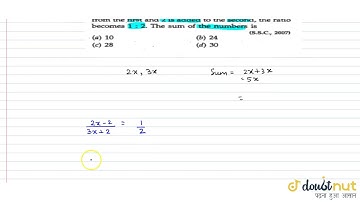 from the first and 2 is added to the second, the ratio
becomes 1 : 2. The sum of the numbers is
(S.S.C., 2007)
(a) 10 (b) 24
(c) 28 (d) 30
2x, 3x Sum = 2x+3x
= 5x
=
2x-2 = 1
3x+2 2
doubtnut
पढ़ना हुआ आसान